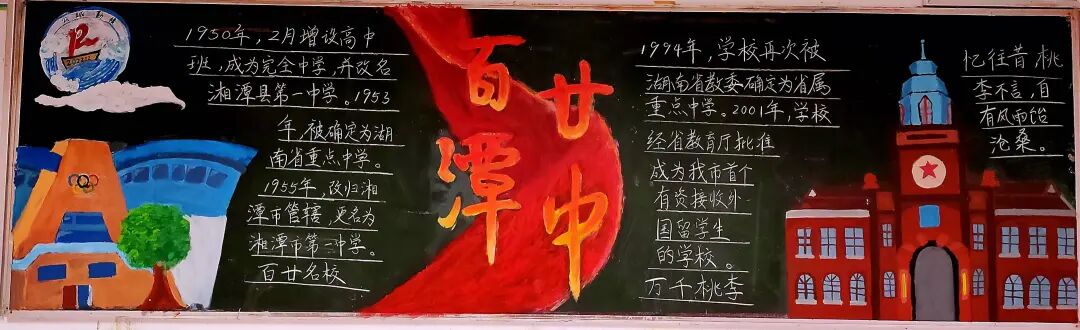 1950年,2月增设高中
班,成为完全中学,并改名
湘潭县第一中学。1953
年,被确定为湖
南省重点中学。
1955年,改归湘
潭市管辖,更名为
湘潭市第二中学。
百廿名校
百廿
潭中
1994年,学校再次被
湖南省教委确定为省属
重点中学。2001年,学校
经省教育厅批准
成为我市首个
有资接收外
国留学生
的学校。
万千桃李
忆往昔桃
李不言,自
有风雨饴
沧桑。